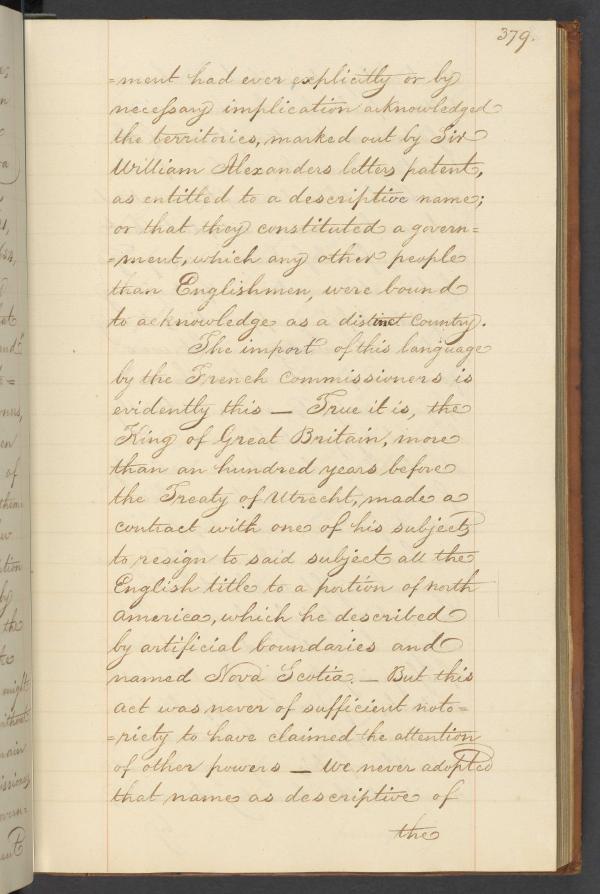 379.
=ment had ever explicitly or by
necessary implication acknowledged
the territories, marked out by Sir
William Alexanders letters patent,
as entitled to a descriptive name;
or that they constituted a govern=
=ment, which any other people
than Englishmen, were bound
to acknowledge as a distinct country.
The import of this language
by the French Commissioners is
evidently this — True it is, the
King of Great Britain, more
than an hundred years before
the Treaty of Utrecht, made a
contract with one of his subjects
to resign to said subject all the
English title to a portion of north
America, which he described
by artificial boundaries and
named Nova Scotia. — But this
act was never of sufficient noto=
=riety to have claimed the attention
of other powers — We never adopted
that name as descriptive of
the